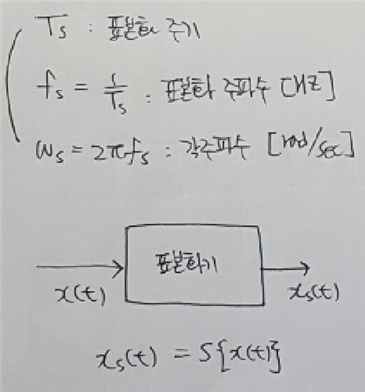 Ts : 표본화 주기
fs = 1/Ts : 표본화 주파수 [Hz]
ωs = 2πfs : 각주파수 [rad/sec]
표본화기
x(t)
xs(t)
xs(t) = S{x(t)}